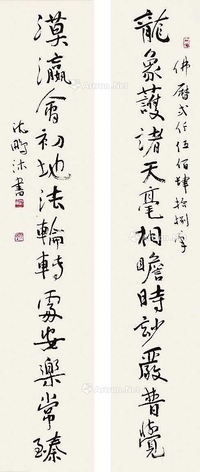 龍象護諸天毫相瞻時妙嚴普覺
佛歷弍仟伍佰肆拾捌年
漠瀛會初地法輪轉處安樂常臻
沈鵬沐書